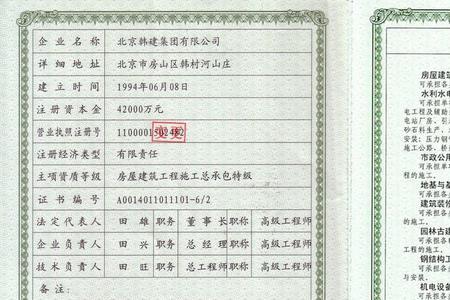 企业名称 北京韩建集团有限公司
详细地址 北京市房山区韩村河山庄
建立时间 1994年06月08日
注册资本金 42000万元
营业执照注册号
注册经济类型 有限责任
主项资质等级 房屋建筑工程施工总承包特级
证书编号 A0014011011101-6/2
法定代表人 田雄 职务 董事长 职称 高级工程师
企业负责人 田兴 职务 总经理 职称 高级工程师
技术负责人 田旺 职务 总工程师 职称 高级工程师
备注:
房屋建筑
可承担各
水利水电
可承担单
电工程及辅助
电站厂房、引
砂石料生产、
安装;压力钢
施工公路、桥
市政公用
可承担各
程的施工。
地基与基
可承担各
建筑装修
可承担各
的施工。
园林古建
可承担各
工程的施工。
钢结构工
可承担各
与安装。
机电设备